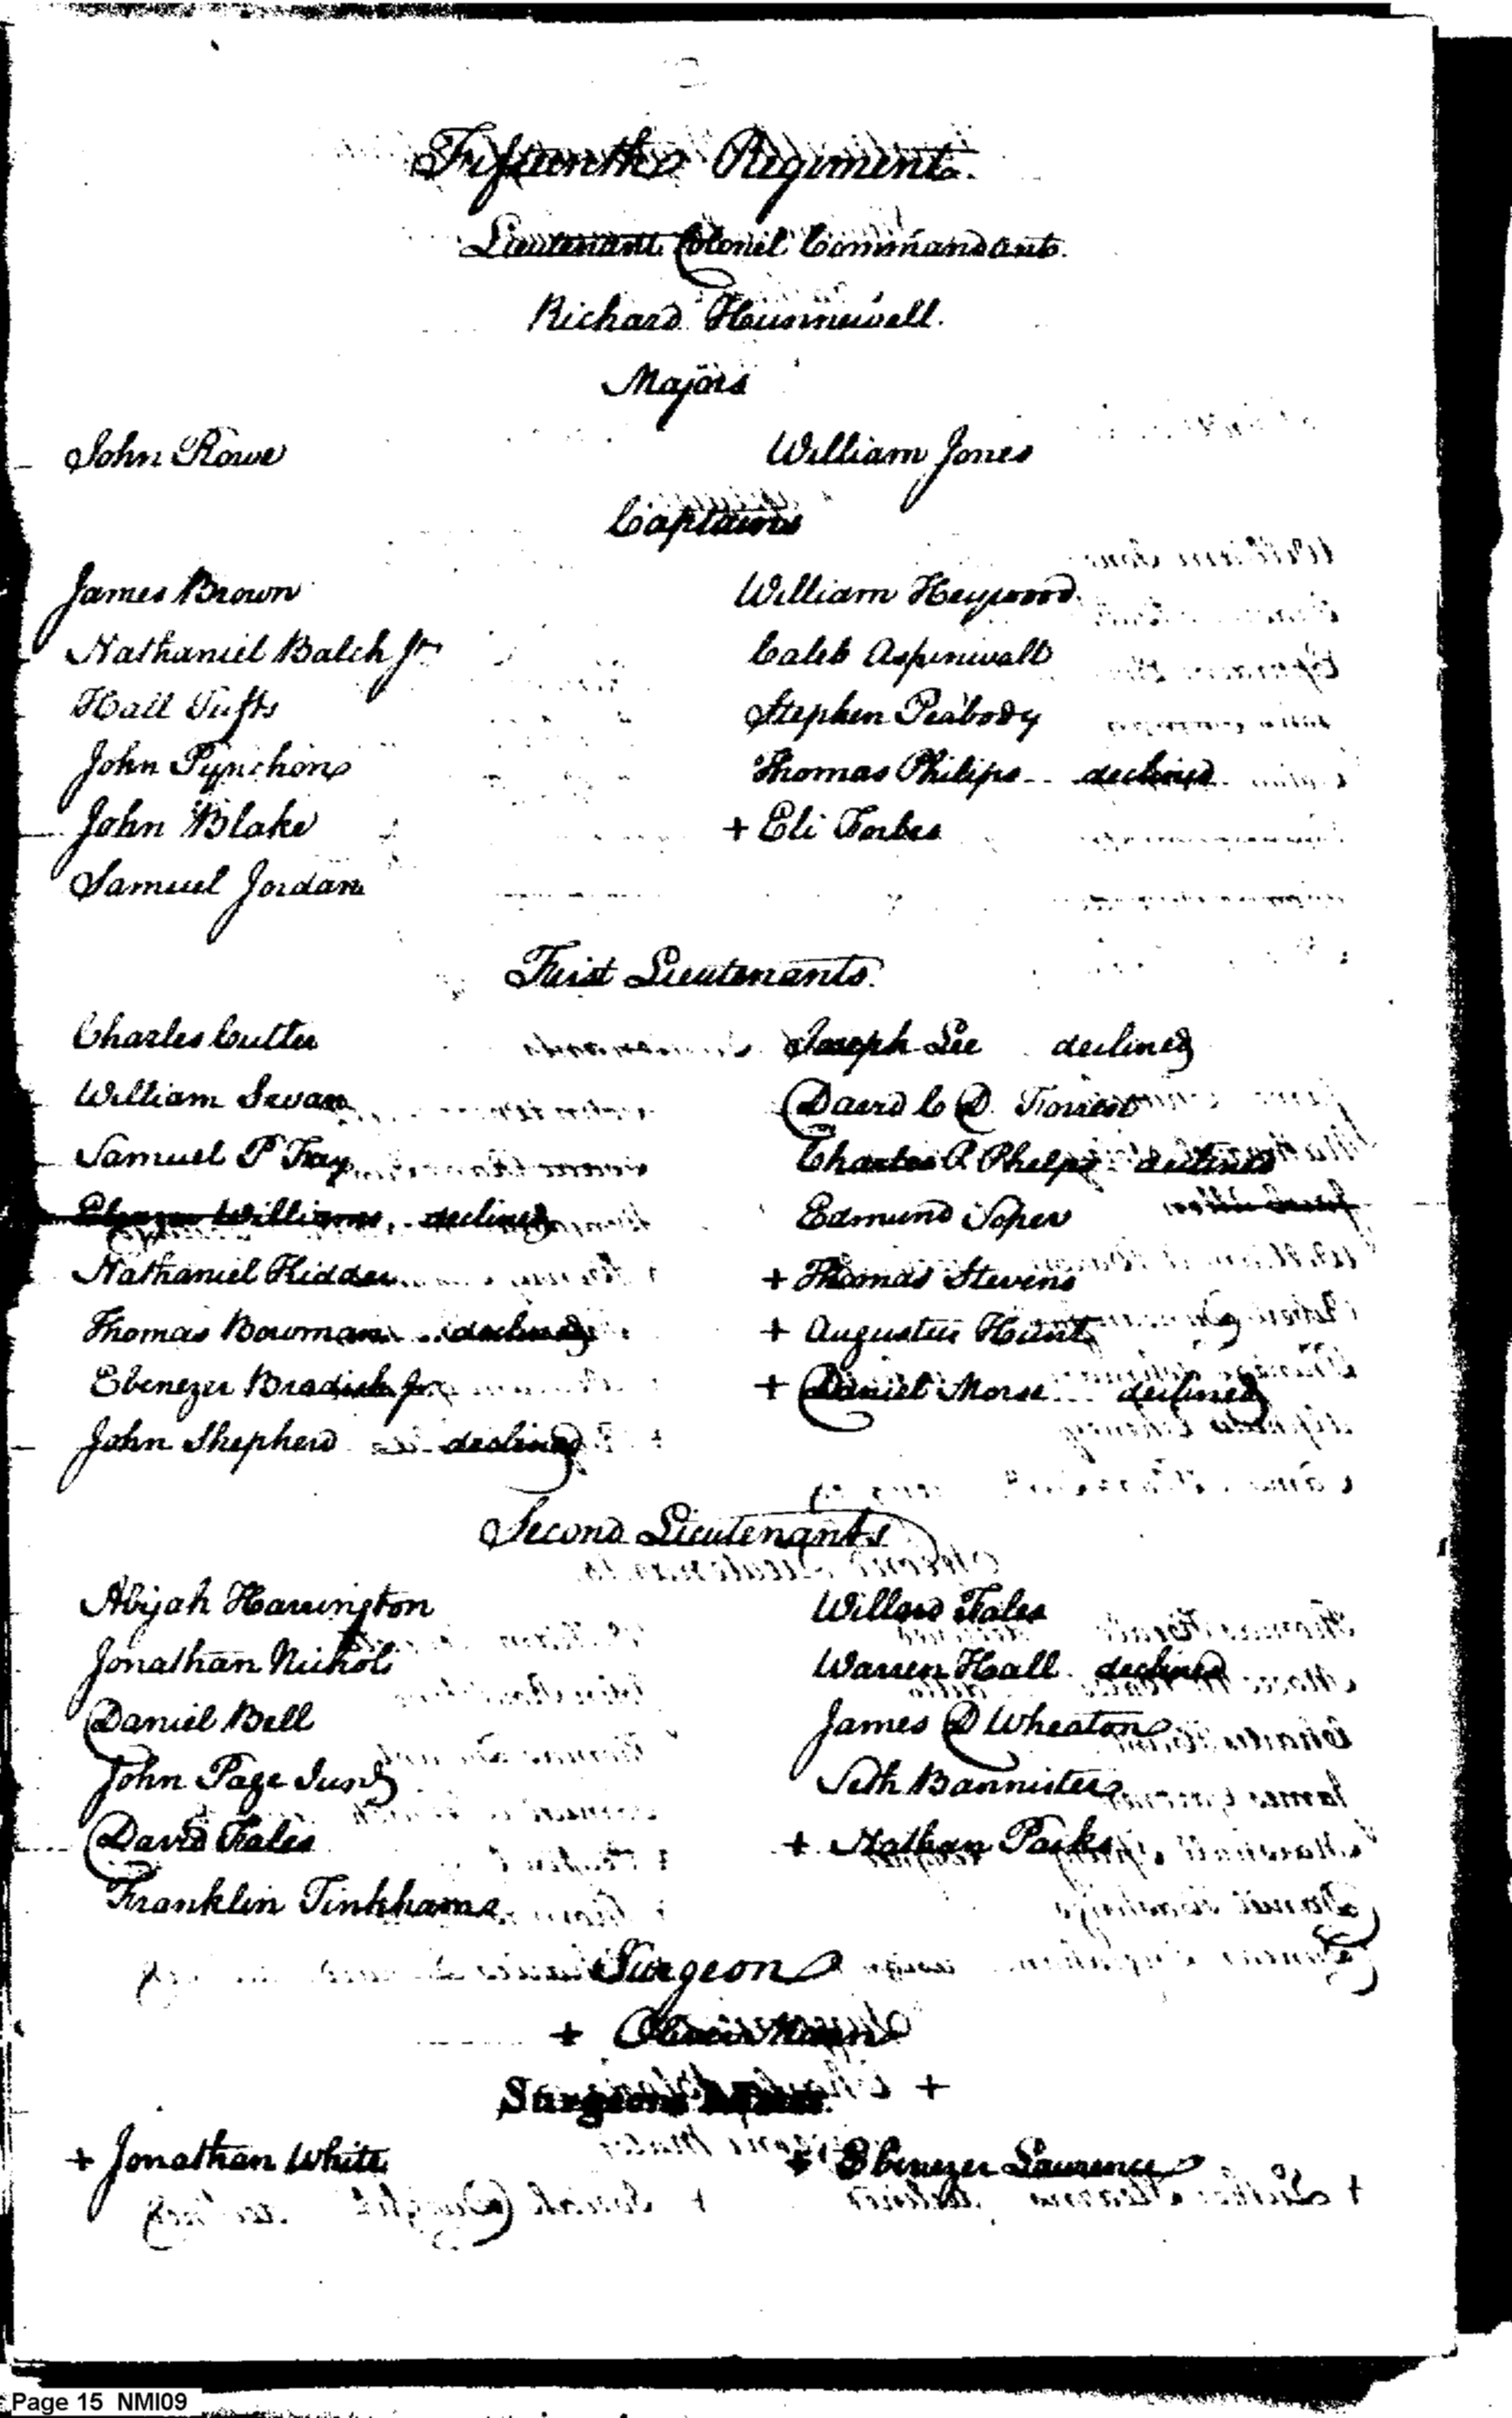 Fifteenth Regiment.
Lieutenant Colonel Commandant.
Richard Hunnewell.
Majors
John Rowe William Jones
Captains
James Brown William Heywood
Nathaniel Balch Jr Caleb Aspinwall
Hall Tufts Stephen Peabody
John Pynchon Thomas Philips declined
John Blake + Eli Forbes
Samuel Jordan
First Lieutenants.
Charles Cutler Joseph Lee declined
William Swan David C D Forrest
Samuel P Fay Charles P Phelps declined
Williams declined Edmund Soper
Nathaniel Kidder + Thomas Stevens
Thomas Bowman declined + Augustus Hunt
Ebenezer Bradish Jr + Daniel Morse declined
John Shepherd declined
Second Lieutenants
Abijah Harrington Willard Fales
Jonathan Nichols Warren Hall declined
Daniel Bell James D Wheaton
John Page Jun Seth Bannister
David Fales + Nathan Parks
Franklin Tinkham
Surgeon
+ Oliver
Surgeons Mates
+ Jonathan White + Ebenezer Laurence
Page 15 NMI09